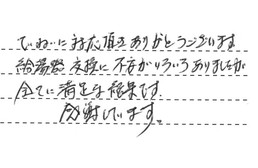 ていねいに対応頂きありがとうございます
給湯器交換に不安がいろいろありましたが
全てに満足な結果です。
感謝しています。